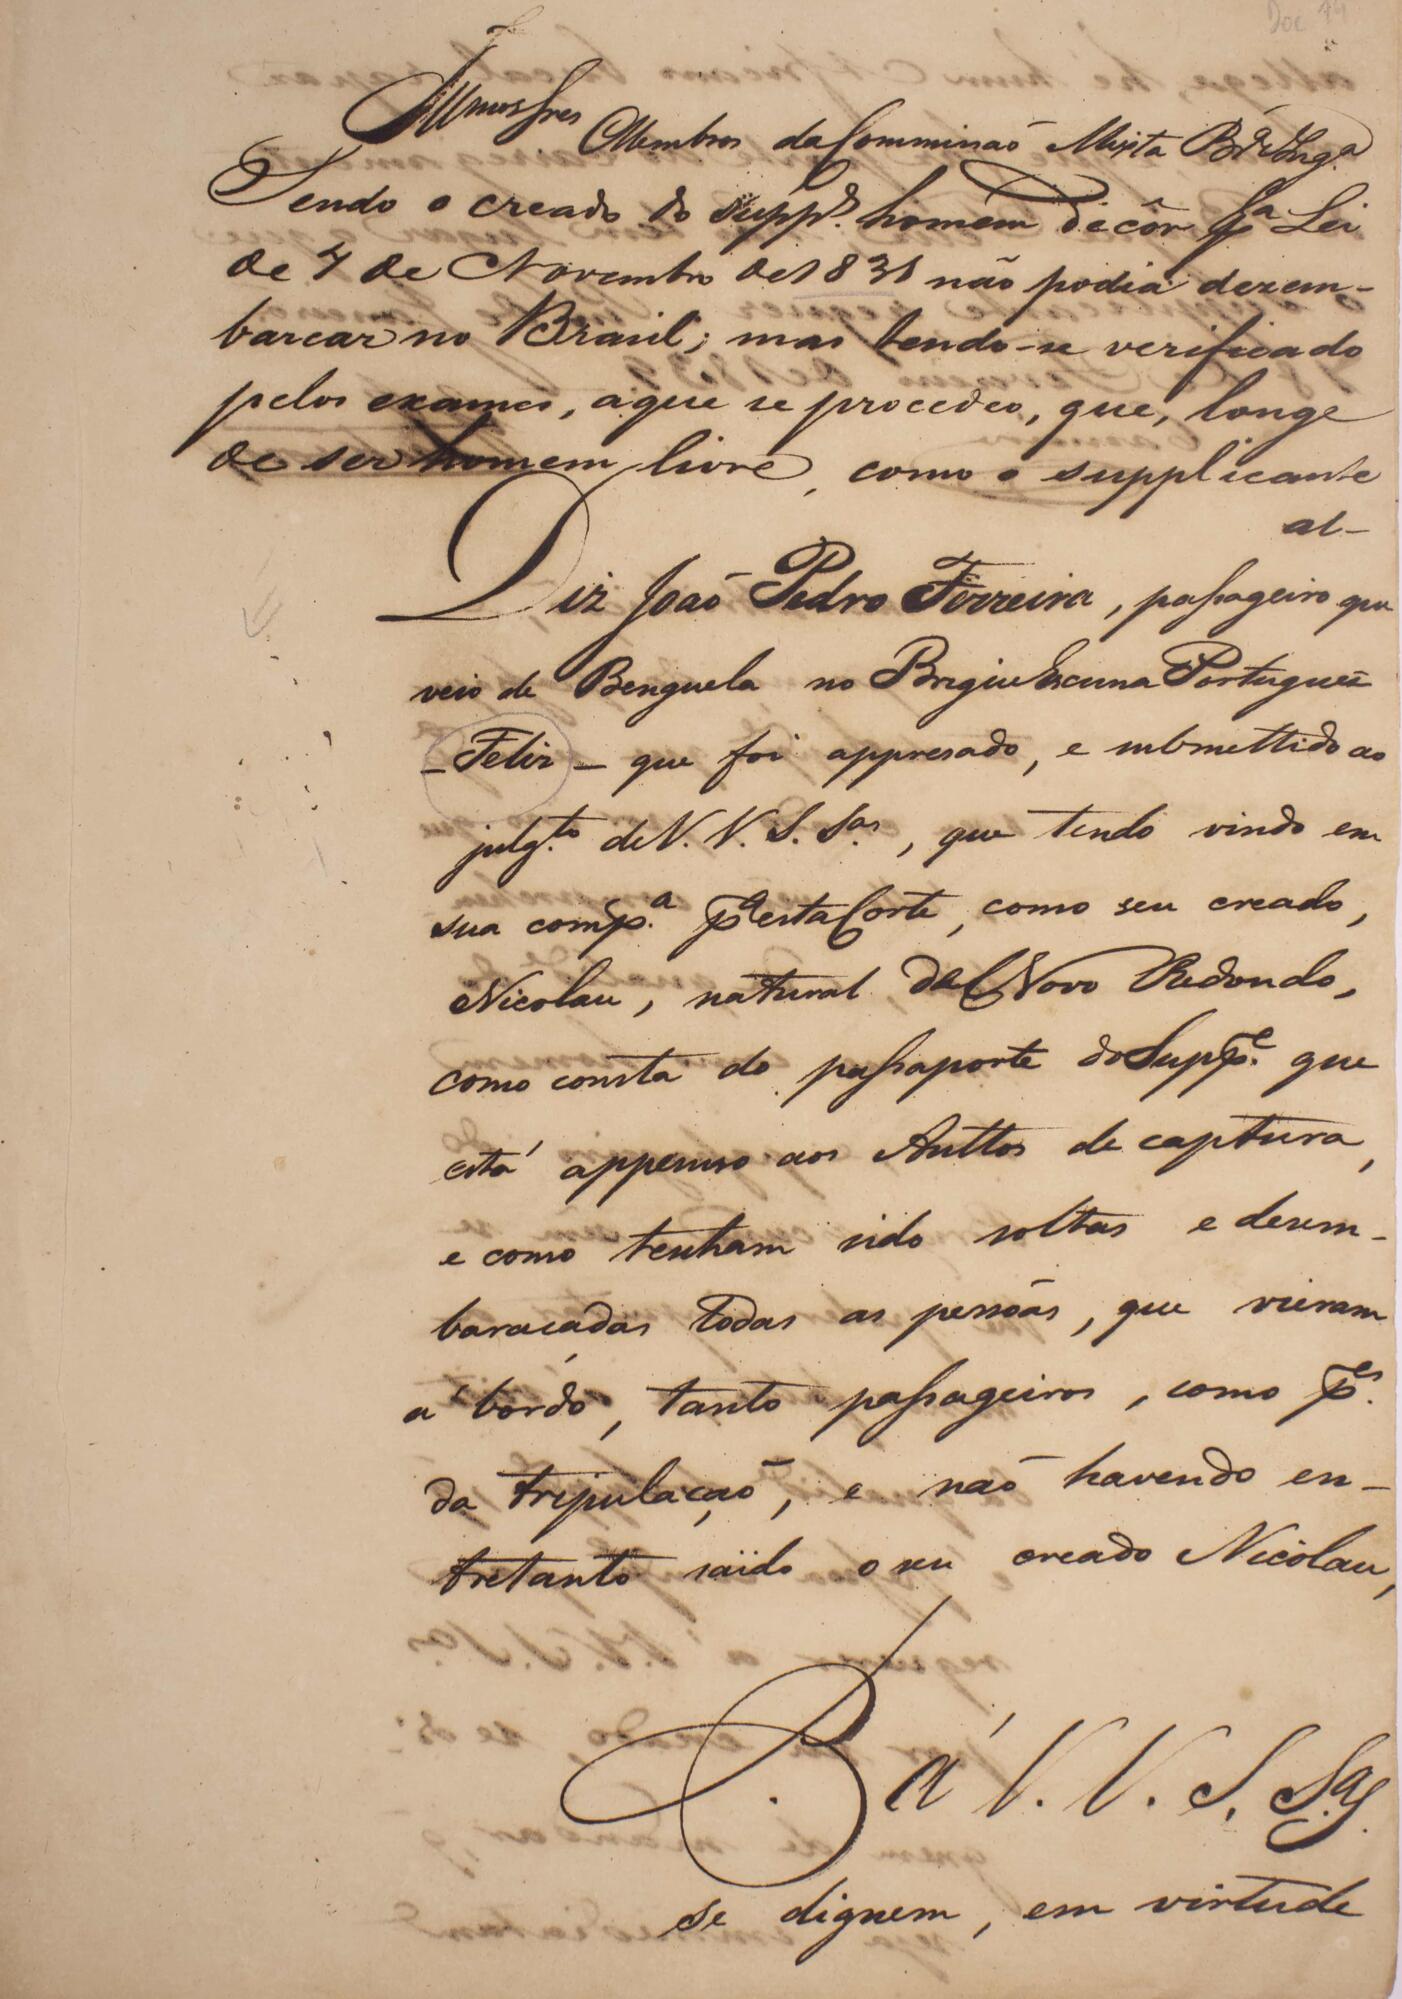 Doc 14
Illmos Snres Membros da Commissaõ Mixta Bra. e Inga.
Sendo o creado do suppe. homem de côr pa. Lei
de 7 de Novembro de 1831 não podia dezem-
barcar no Brasil; mas tendo-se verificado
pelos exames, a que se procedeo, que, longe
de ser homem livre, como o supplicante
al-
Diz Joaõ Pedro Ferreira, passageiro que
veio de Benguela no Brigue Escuna Portuguez
- Feliz - que foi appresado, e submettido ao
julgto. de V. V. S. Sas., que tendo vindo em
sua compa. pa esta Corte, como seu creado,
Nicolau, natural de Novo Redondo,
como consta do passaporte do Suppe. que
está appenso aos Auttos de captura,
e como tenham sido soltas e desem-
baraçadas todas as pessoas, que vieram
a' bordo, tanto passageiros, como pes.
da tripulaçaõ, e naõ havendo en-
tretanto saïdo o seu creado Nicolau,
P. a' V. V. S. Sas.
se dignem, em virtude